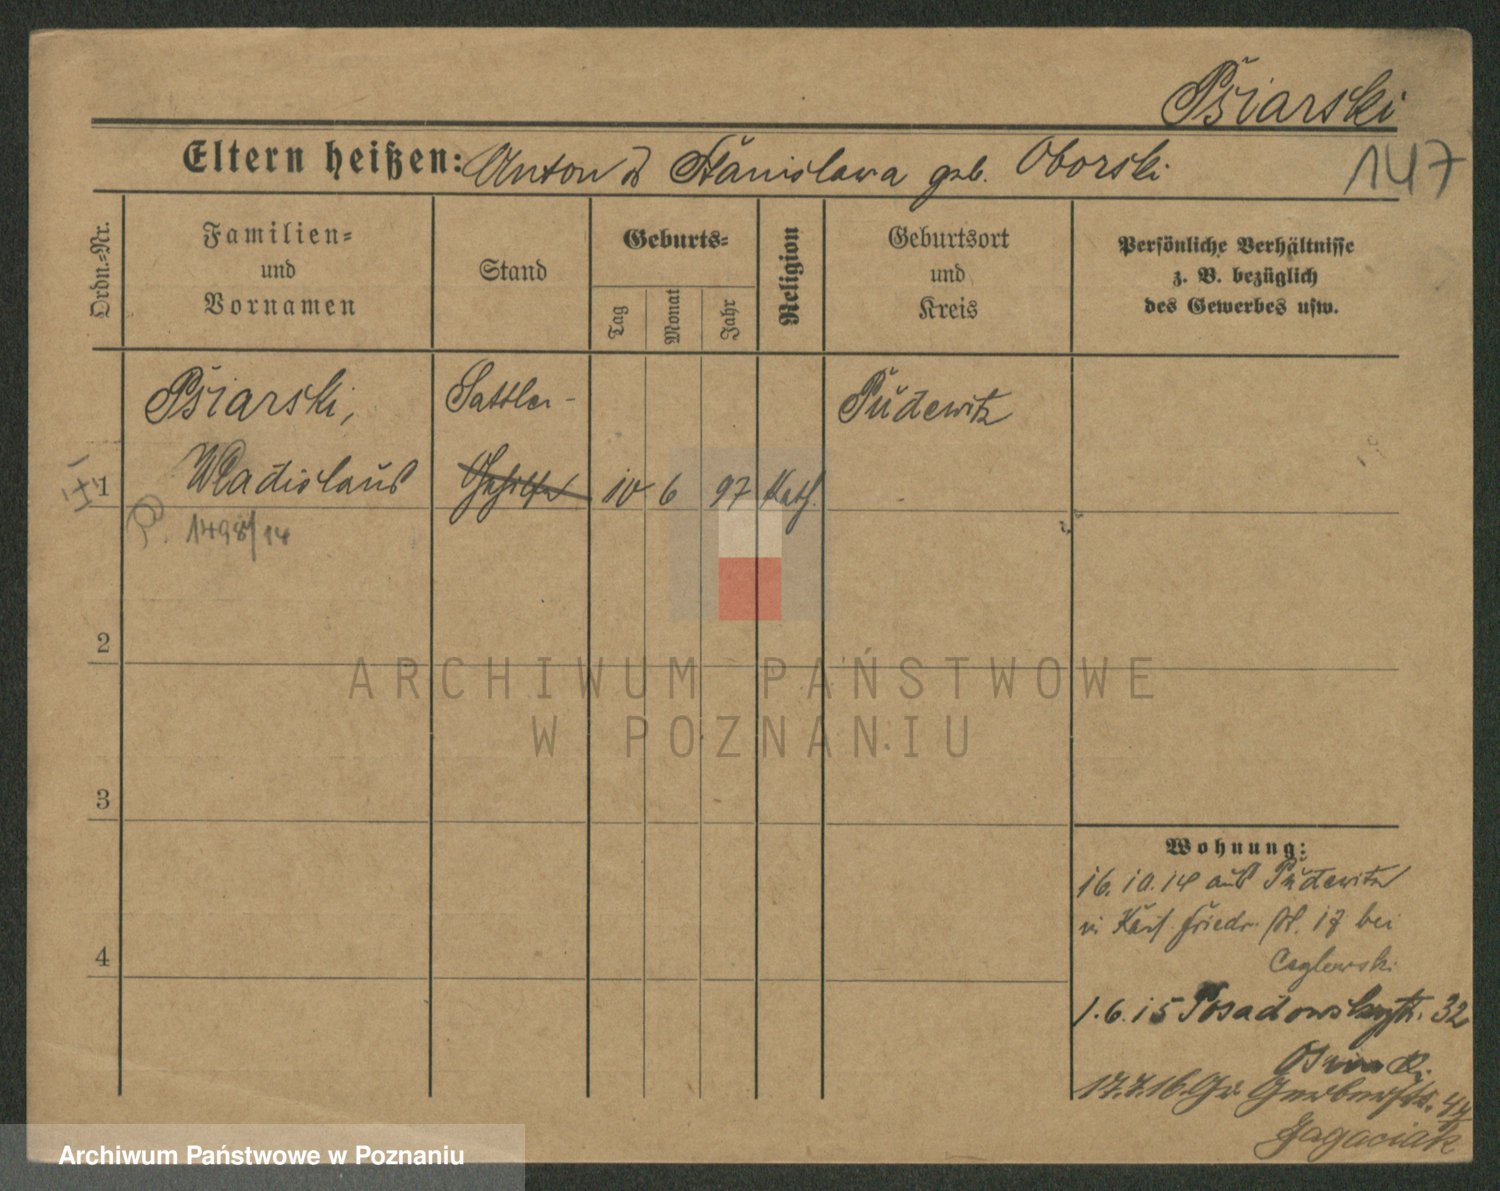 Psiarski
147
Eltern heißen: Anton u Stanislawa geb. Oborski
Ordn.=Nr.
Familien=
und
Vornamen
Stand
Geburts=
Tag
Monat
Jahr
Religion
Geburtsort
und
Kreis
Persönliche Verhältnisse
z. B. bezüglich
des Gewerbes usw.
1
Psiarski,
Wladislaus
1498/14
Sattler-
Gehilfe
10 6 97 Kath.
Pudewitz
2
3
4
Wohnung:
16.10.14 aus Pudewitz
in Kais. Friedr. St. 17 bei
Caglewski
1.6.15 Posadowskystr. 32
17.7.16 Gr Gerberstr. 44
Jagaciak
ARCHIWUM PAŃSTWOWE
W POZNANIU
Archiwum Państwowe w Poznaniu